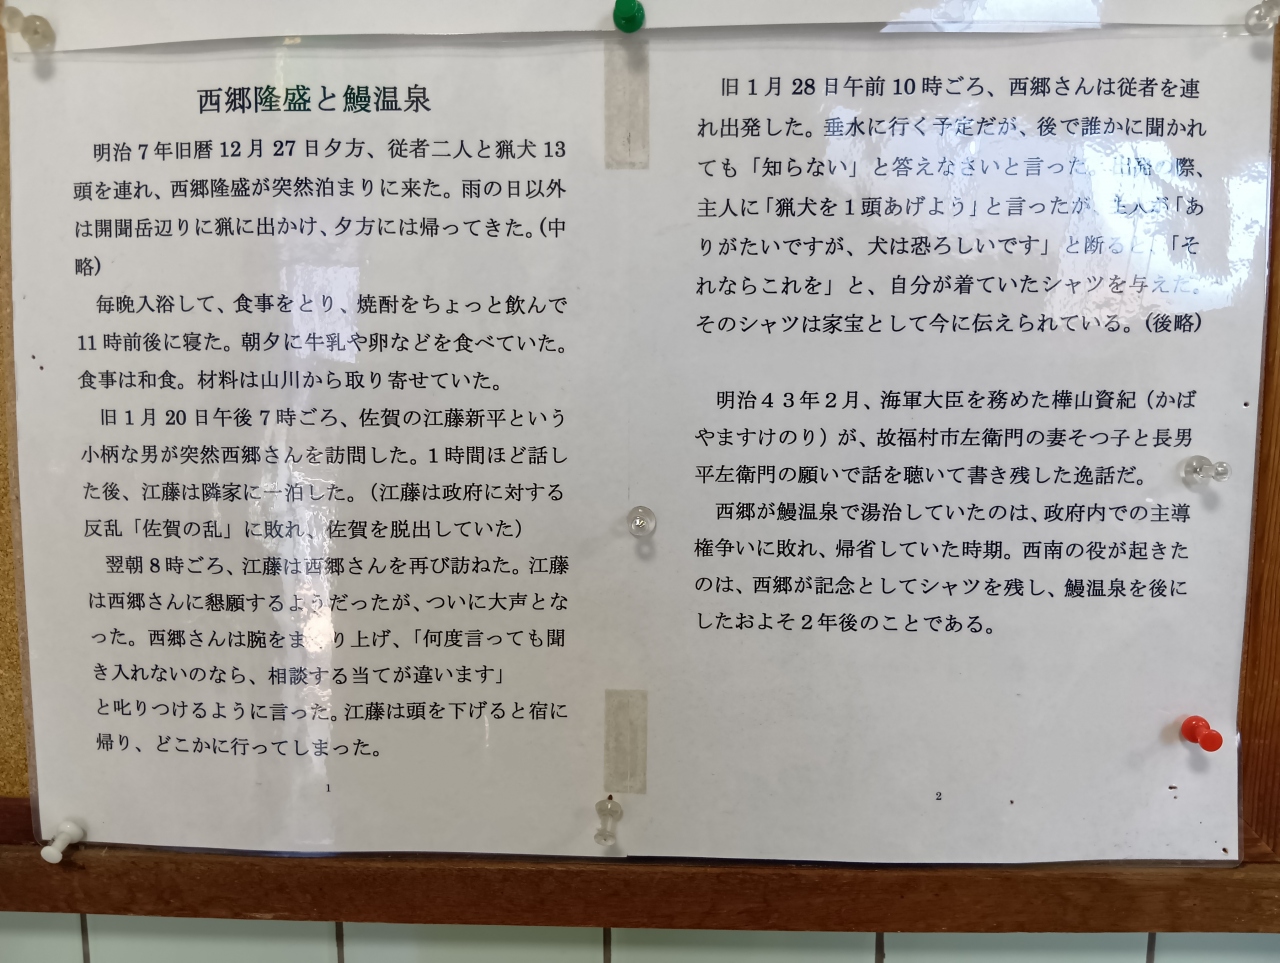 西郷隆盛と鰻温泉
明治7年旧暦12月27日夕方、従者二人と猟犬13
頭を連れ、西郷隆盛が突然泊まりに来た。雨の日以外
は開聞岳辺りに猟に出かけ、夕方には帰ってきた。(中
略)
毎晩入浴して、食事をとり、焼酎をちょっと飲んで
11時前後に寝た。朝夕に牛乳や卵などを食べていた。
食事は和食。材料は山川から取り寄せていた。
旧1月20日午後7時ごろ、佐賀の江藤新平という
小柄な男が突然西郷さんを訪問した。1時間ほど話し
た後、江藤は隣家に一泊した。（江藤は政府に対する
反乱「佐賀の乱」に敗れ、佐賀を脱出していた）
翌朝8時ごろ、江藤は西郷さんを再び訪ねた。江藤
は西郷さんに懇願するようだったが、ついに大声とな
った。西郷さんは腕をまくり上げ、「何度言っても聞
き入れないのなら、相談する当てが違います」
と叱りつけるように言った。江藤は頭を下げると宿に
帰り、どこかに行ってしまった。
1
旧1月28日午前10時ごろ、西郷さんは従者を連
れ出発した。垂水に行く予定だが、後で誰かに聞かれ
ても「知らない」と答えなさいと言った。出発の際、
主人に「猟犬を1頭あげよう」と言ったが、主人が「あ
りがたいですが、犬は恐ろしいです」と断ると、「そ
れならこれを」と、自分が着ていたシャツを与えた。
そのシャツは家宝として今に伝えられている。(後略)
明治４３年２月、海軍大臣を務めた樺山資紀（かば
やますけのり）が、故福村市左衛門の妻そつ子と長男
平左衛門の願いで話を聴いて書き残した逸話だ。
西郷が鰻温泉で湯治していたのは、政府内での主導
権争いに敗れ、帰省していた時期。西南の役が起きた
のは、西郷が記念としてシャツを残し、鰻温泉を後に
したおよそ２年後のことである。
2